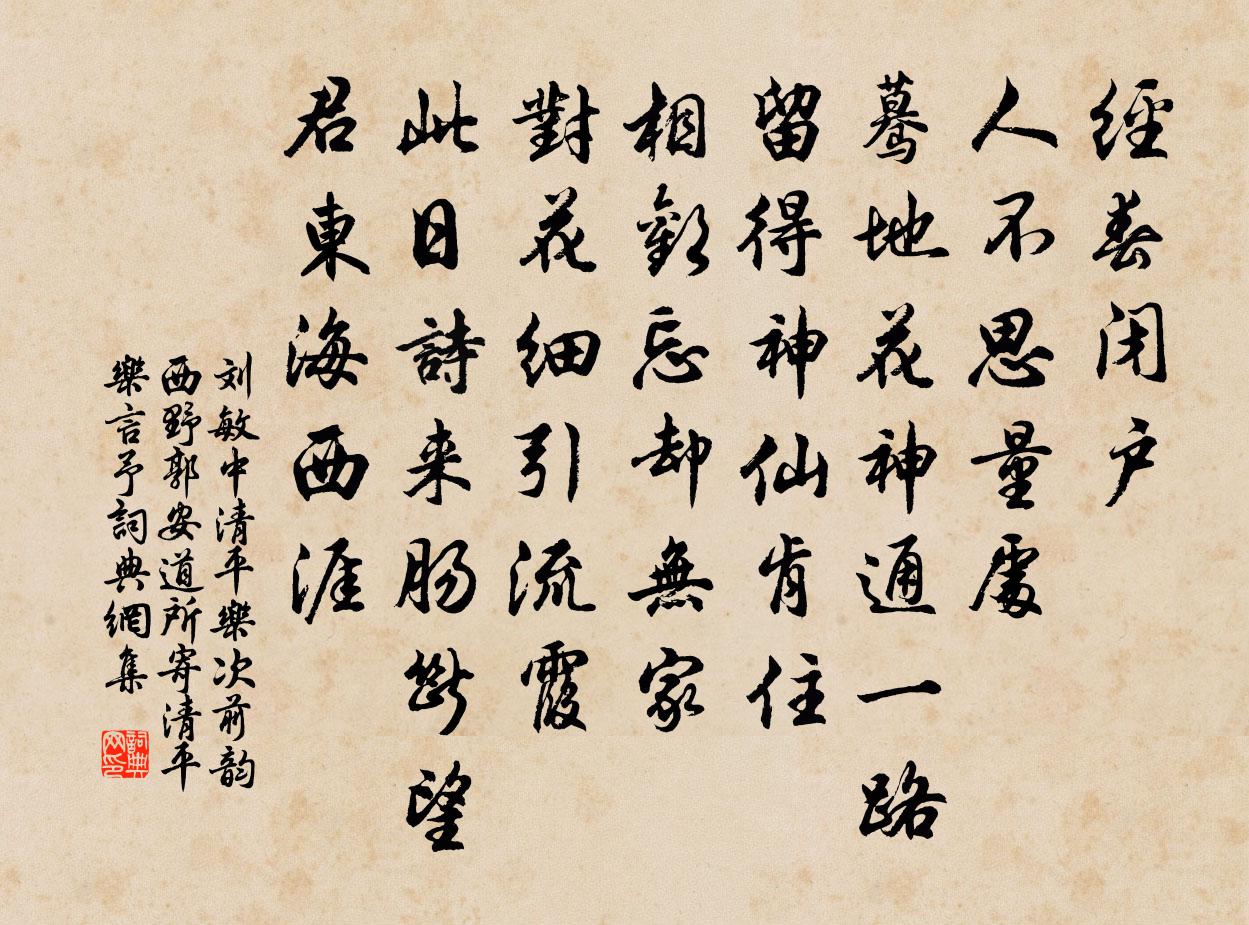 經春闭户
人不思量處
驀地花神通一路
留得神仙肯住
相歡忘却無家
對花细引流霞
此日詩来肠斷望
君東海西涯
刘敏中清平樂次前韵
西野郭安道所寄清平
樂言予詞典網集
詞典网印